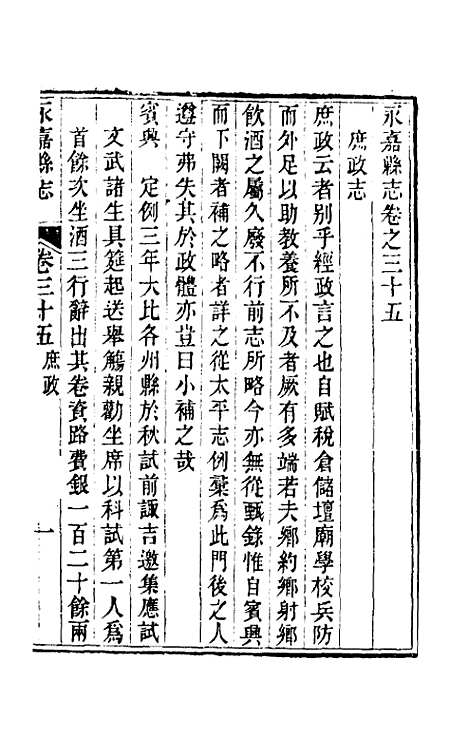 永嘉縣志卷之三十五
庶政志
庶政云者别乎經政言之也自賦稅倉儲壇廟學校兵防
而外足以助教養所不及者厥有多端若夫鄉約鄉射鄉
飲酒之屬久廢不行前志所略今亦無從甄錄惟自賓興
而下闕者補之略者詳之從太平志例彙爲此門後之人
遵守弗失其於政體亦豈曰小補之哉
賓興　定例三年大比各州縣於秋試前諏吉邀集應試
文武諸生具筵起送舉觴親勸坐席以科試第一人爲
首餘次坐酒三行辭出其卷資路費銀一百二十餘兩
永嘉縣志　卷三十五　庶政　一